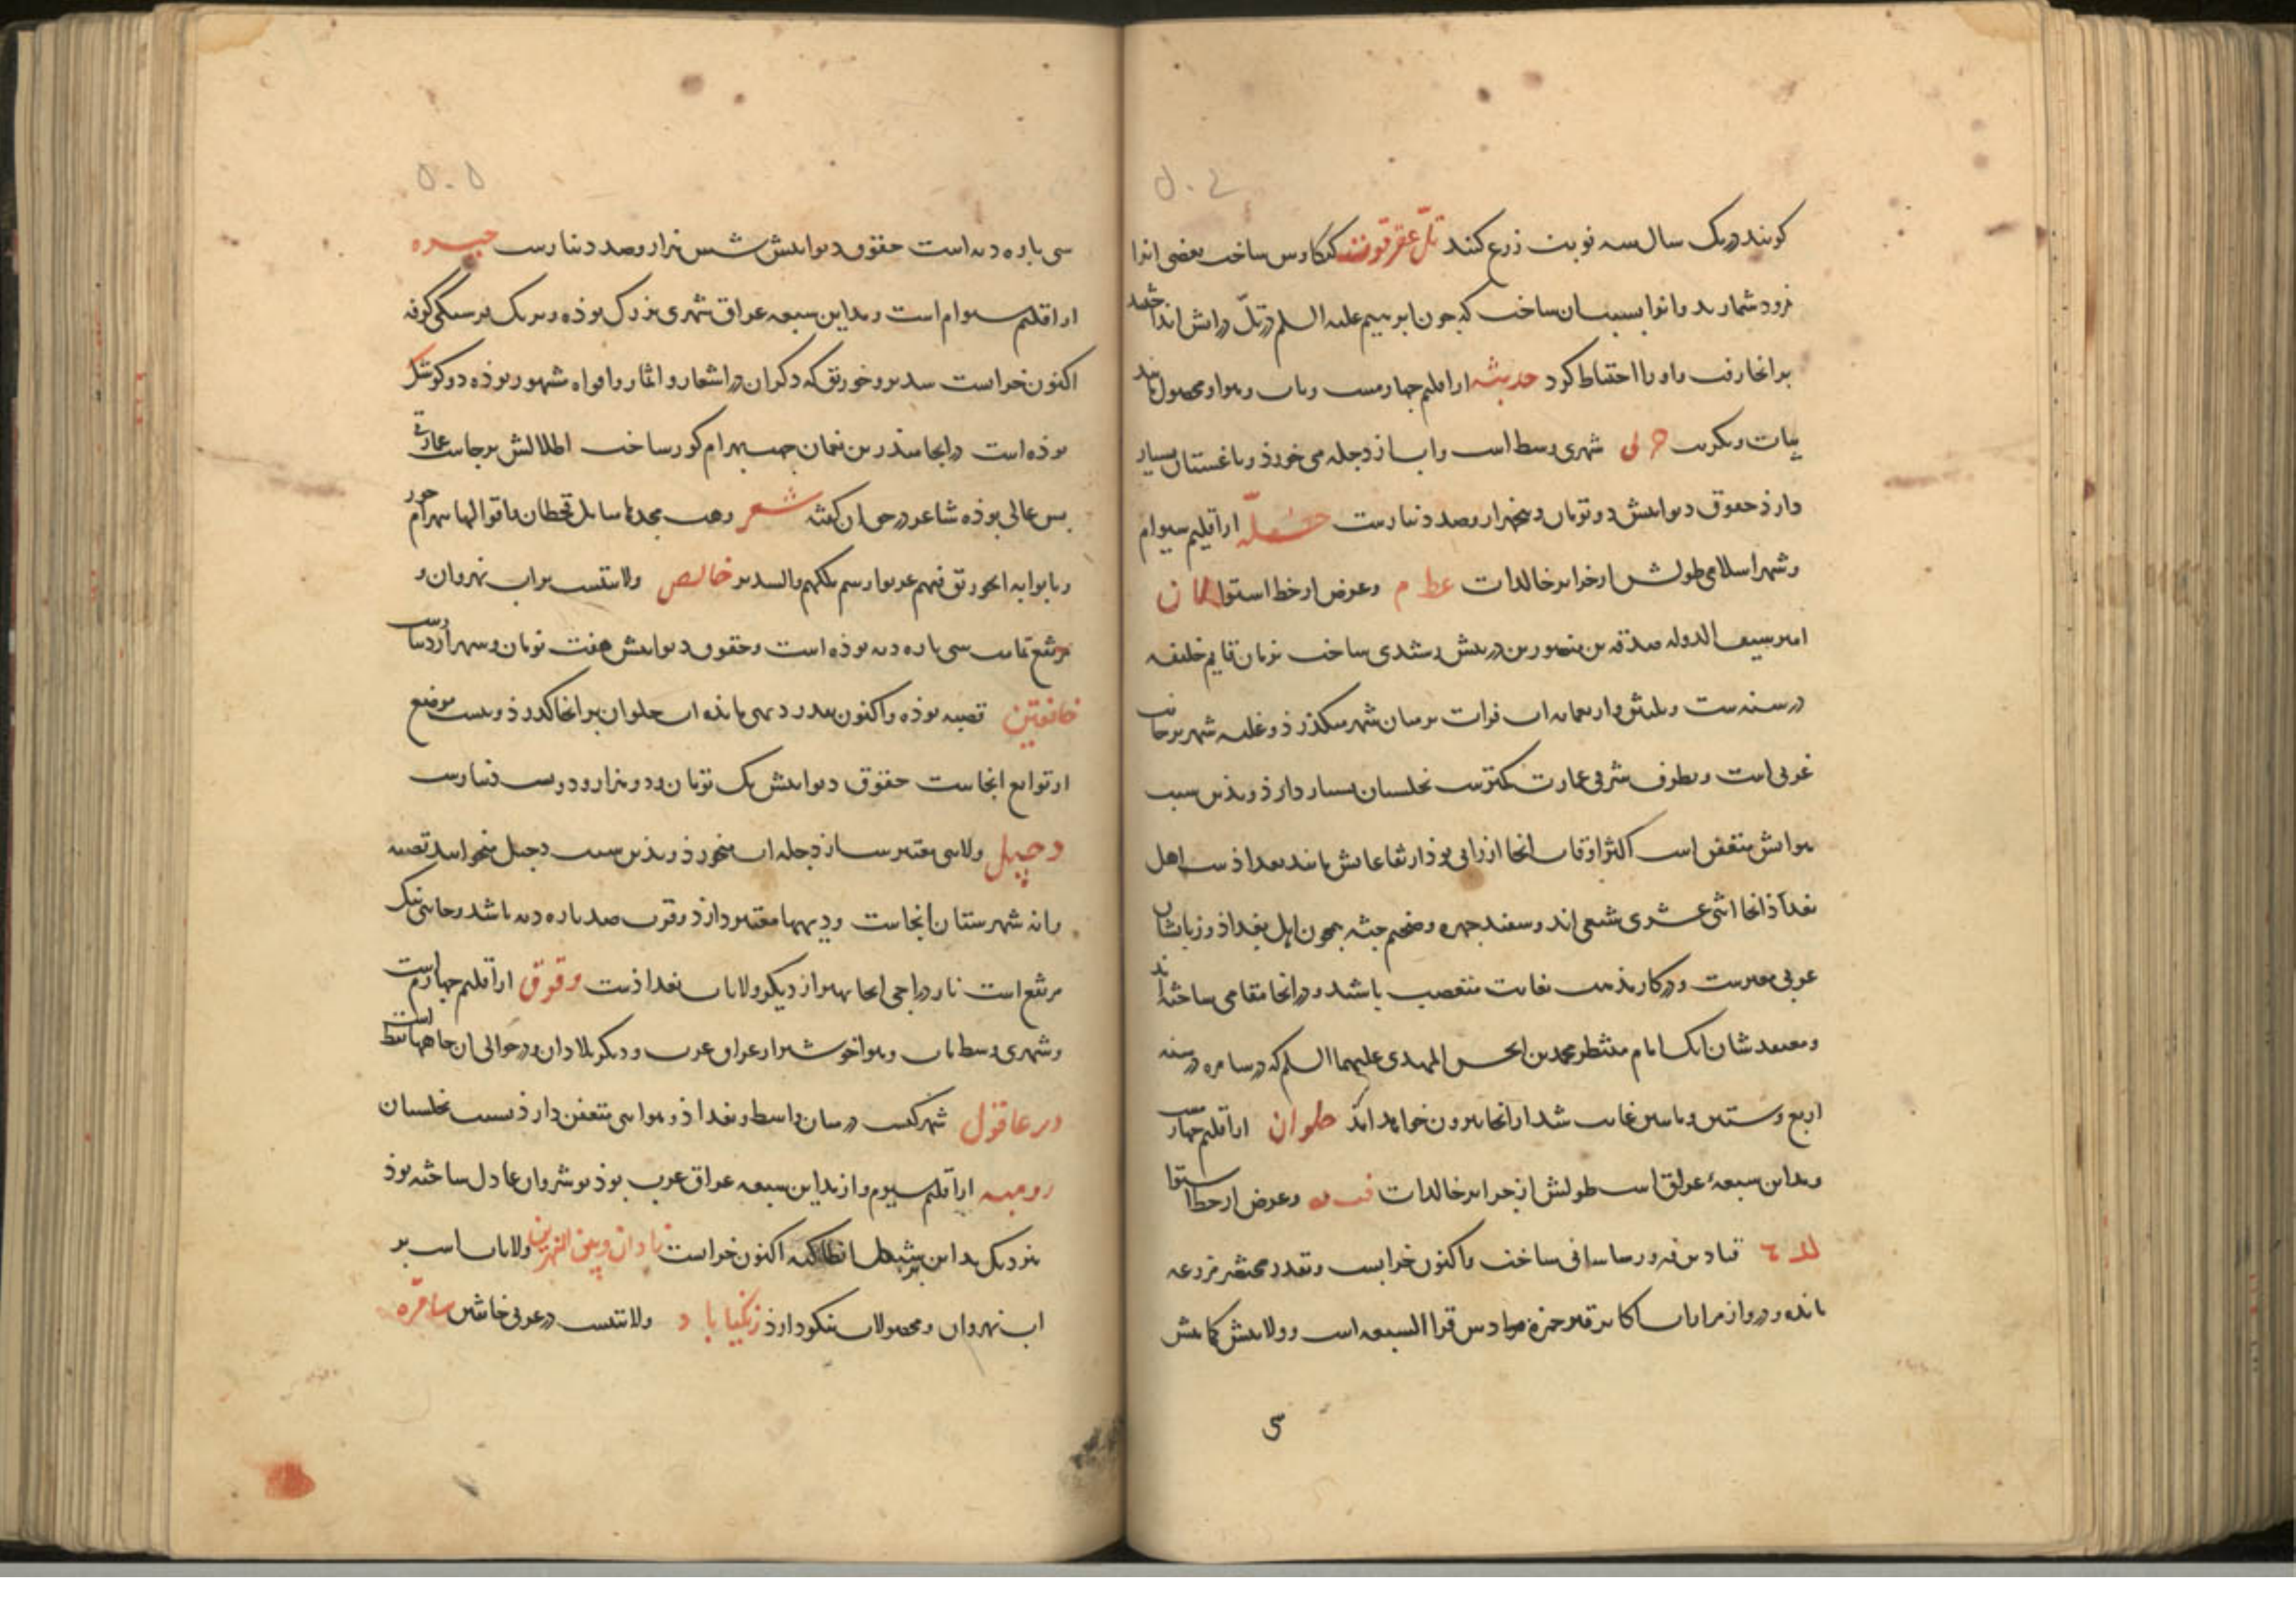 ۵۰۴
کویند در یک سال سه نوبت زرع کنند تلّ عقرقوف کیکاوس ساخت بعضی انرا
نمرود شمارند و انرا بسبب ان ساخت که چون ابرهیم علیه السلم در تلّ در اتش انداختند
بر انجا رفت و او را احتیاط کرد حدیثه از اقلیم چهارمست و باب و هوا و محصول مانند
بیات و تکریت حربی شهری وسط است و اب از دجله می خورد و باغستان بسیار
دارد حقوق دیوانیش دو تومان و پنجهزار و صد دینارست حلّه از اقلیم سیوام
و شهر اسلامی طولش از جزایر خالدات عط م و عرض از خط استوا
امیر سیف الدوله صدقه بن منصور بن دبیس اسدی ساخت بزمان قایم خلیفه
در سنه ست و ثلثین و اربعمایه اب فرات بر میان شهر میکذرد و غلبه شهر بر جانب
غربی است و بطرف شرقی عمارت کمترست نخلستان بسیار دارد و بدین سبب
هوایش متعفن است اکثر اوقات انجا ارزانی بود ارتفاعاتش مانند بغدادست اهل
انجا اثنی عشری شیعی اند و سفید چهره و ضخیم جثه همچون اهل بغداد و زبانشان
عربی مغیرست و در کار مذهب بغایت متعصب باشند و در انجا مقامی ساخته اند
و معتقدشان انک امام منتظر محمد بن الحسن المهدی علیهما السلم که در سامره در سنه
اربع و ستین و ماتین غایب شد از انجا بیرون خواهد امد حلوان از اقلیم چهارست
و مداین سبعهٔ عراق است طولش از جزایر خالدات و عرض از خط استوا
قباد بن فیروز ساسانی ساخت و اکنون خرابست و بقدر مختصر مزرعه
مانده و در و از مزارات اکابر قبر حمزه من قراء السبعه است و ولایتش کمابیش
۵۰۵
سی باره دیه است حقوق دیوانیش شش هزار و صد دینارست حیره
از اقلیم سیوام است و مداین سبعه عراق شهری بزرک بوده و بر یک فرسنکی کوفه
اکنون خراست سدیر و خورنق که ذکر ان در اشعار و اثار و افواه مشهور بوده دو کوشک
بوده است در انجا منذر بن نعمان جهت بهرام کور ساخت اطلالش بر جاست عمارتی
بس عالی بوده شاعر در حق ان کفته شعر
خالص ولایتیست بر اب نهروان و
مرتفع تمامت سی باره دیه بوده است و حقوق دیوانیش هفت تومان و سه هزار دینارست
خانقین قصبه بوده و اکنون بقدر دیهی مانده اب حلوان بر انجا کذرد و بیست موضع
از توابع انجاست حقوق دیوانیش یک تومان و دو هزار و دویست دینارست
دجیل ولایتی معتبرست از دجله اب میخورد و بدین سبب دجیل میخوانند قصبه
شهرستان انجاست و دیهها معتبر دارد و قرب صد باره دیه باشد و جای نیک
مرتفع است نار دراجی انجا بهتر از دیکر ولایات بغدادست دقوق از اقلیم چهارم است
و شهری وسط باب و هوا خوشتر از عراق عرب و دیکر بلاد ان و در حوالی ان چاهها نفط است
دیر عاقول شهرکیست در میان واسط و بغداد و هوایی متعفن دارد بسبب نخلستان
رومیه از اقلیم سیوم و از مداین سبعه عراق عرب بود نوشروان عادل ساخته بود
نزدیک مداین بشبه انطاکیه اکنون خراست و بین النهرین ولایات است بر
اب نهروان و محصولات نیکو دارد زنکیاباد ولایتیست در عربی خانقین سامرّه